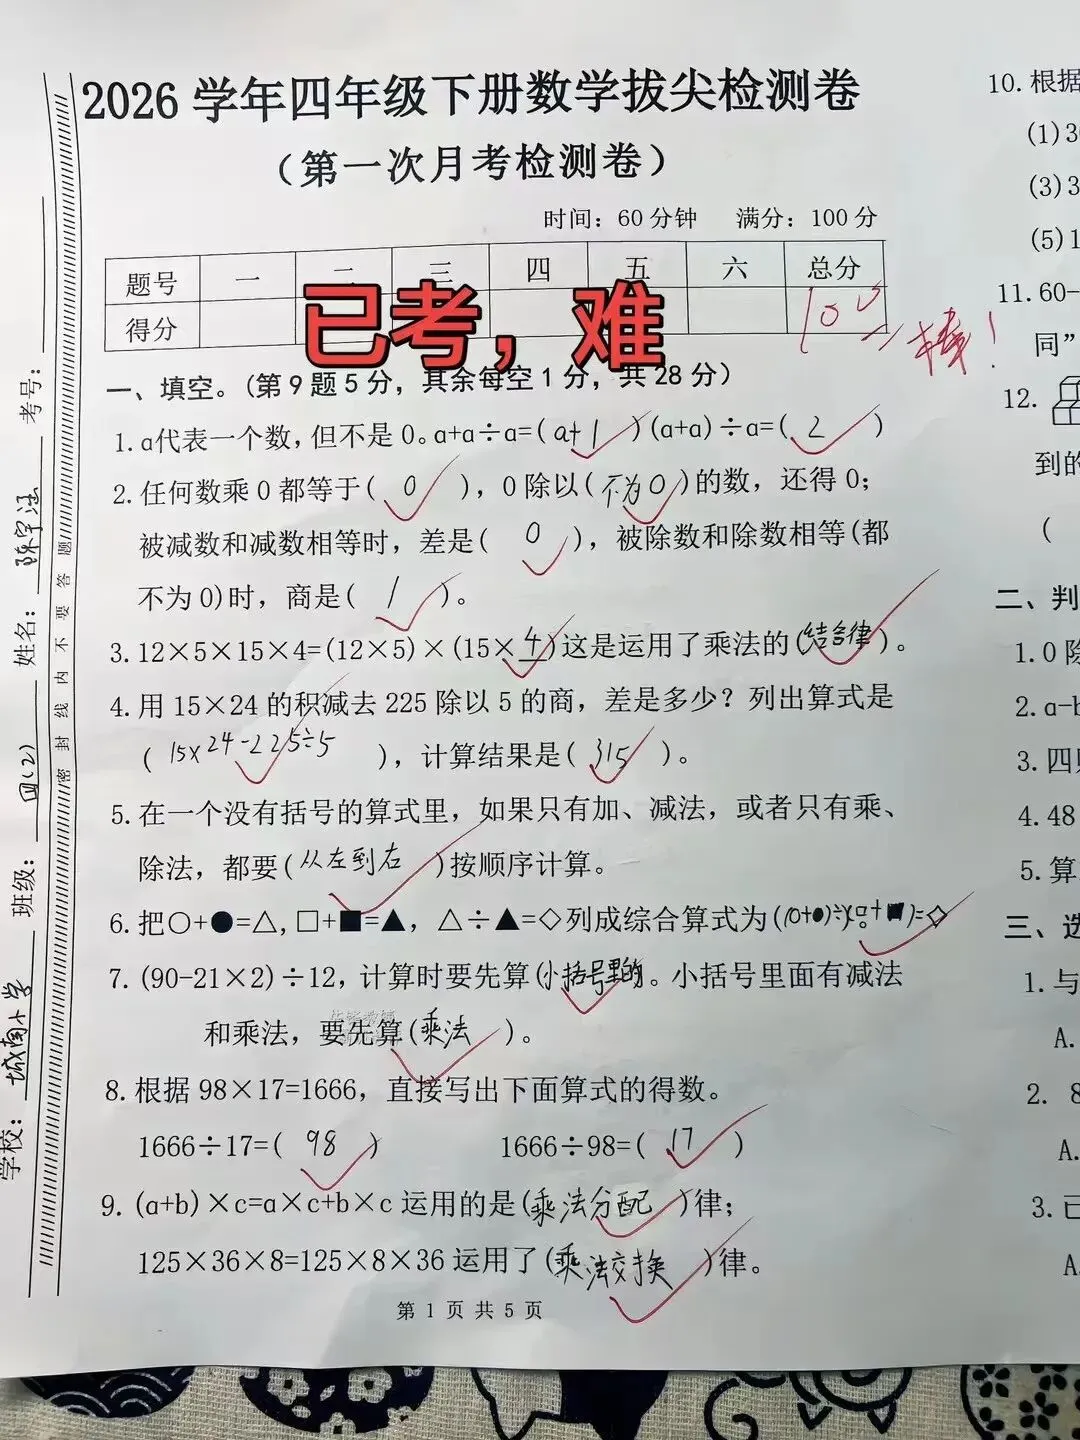 2026 学年四年级下册数学拔尖检测卷
（第一次月考检测卷）
时间：60 分钟 满分：100 分
题号 一 二 三 四 五 六 总分
得分 100
棒！
已考，难
一、填空。(第 9 题 5 分，其余每空 1 分，共 28 分)
1.a代表一个数,但不是 0。a+a÷a=( a+1 )(a+a)÷a=( 2 )
2.任何数乘 0 都等于( 0 ), 0 除以( 不为0 )的数，还得 0；
被减数和减数相等时，差是( 0 )，被除数和除数相等(都
不为 0)时，商是( 1 )。
3.12×5×15×4=(12×5)×(15×4)这是运用了乘法的(结合律)。
4.用 15×24 的积减去 225 除以 5 的商，差是多少？列出算式是
( 15×24-225÷5 )，计算结果是( 315 )。
5.在一个没有括号的算式里，如果只有加、减法，或者只有乘、
除法，都要(从左到右)按顺序计算。
6.把○+●=△,□+■=▲，△÷▲=◇列成综合算式为((○+●)÷(□+■)=◇
7.(90-21×2)÷12，计算时要先算(小括号里的。小括号里面有减法
和乘法，要先算(乘法)。
8.根据 98×17=1666，直接写出下面算式的得数。
1666÷17=( 98 ) 1666÷98=( 17 )
9.(a+b)×c=a×c+b×c 运用的是(乘法分配)律；
125×36×8=125×8×36 运用了(乘法交换)律。
第 1 页 共 5 页
学校：城南小学 班级：四(2) 姓名：陈宇涵 考号：
密 封 线 内 不 要 答 题
10.根据
(1)3
(3)3
(5)1
11.60-
同”
12.
到的
(
二、判
1.0 除
2.a-b
3.四
4.48
5.算
三、选
1.与
A.
2. 8
A.
3.已
A.